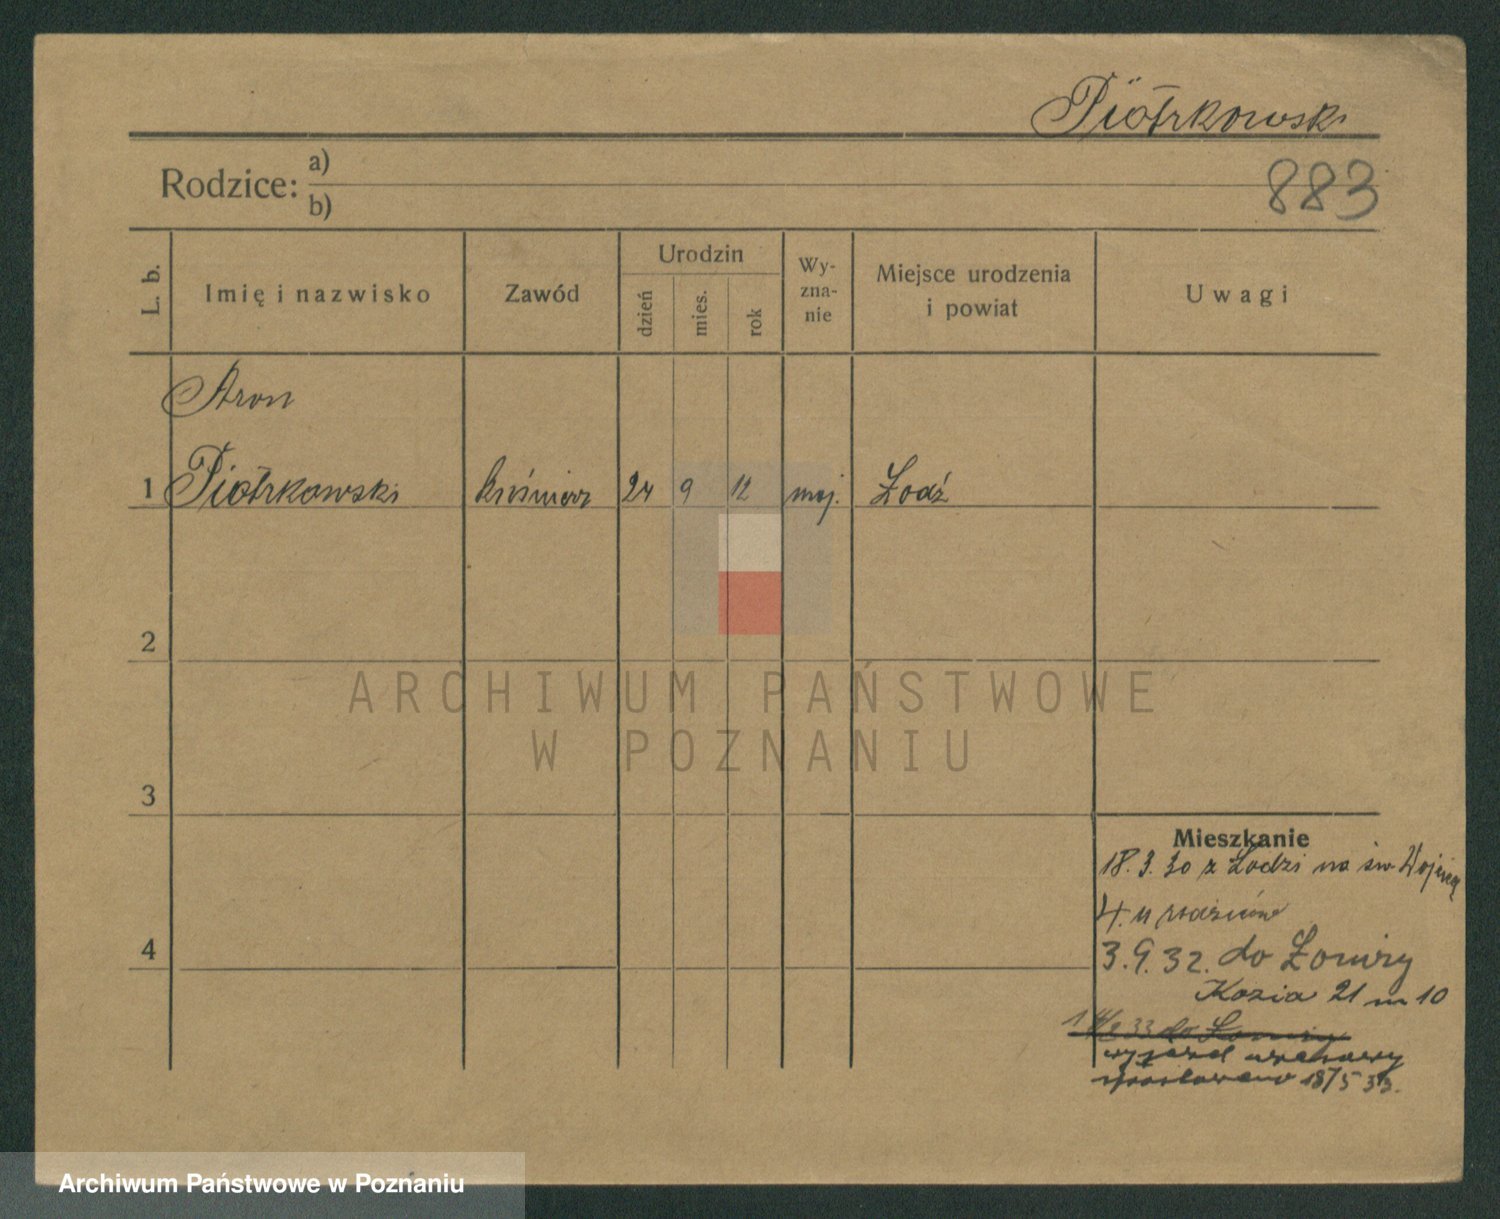 Piotrkowski
Rodzice: a)
b)
883
L. b.
Imię i nazwisko
Zawód
Urodzin
dzień
mies.
rok
Wy-
zna-
nie
Miejsce urodzenia
i powiat
Uwagi
Aron
1 Piotrkowski kuśnierz 24 9 12 moj. Łodź
2
3
4
Mieszkanie
18. 3. 30 z Łodzi na św. Wojciech
4. u rodziców
3. 9. 32. do Łomży
Kozia 21 m 10
33 do Łomży
wyjazd
18/5 33.
ARCHIWUM PAŃSTWOWE
W POZNANIU
Archiwum Państwowe w Poznaniu